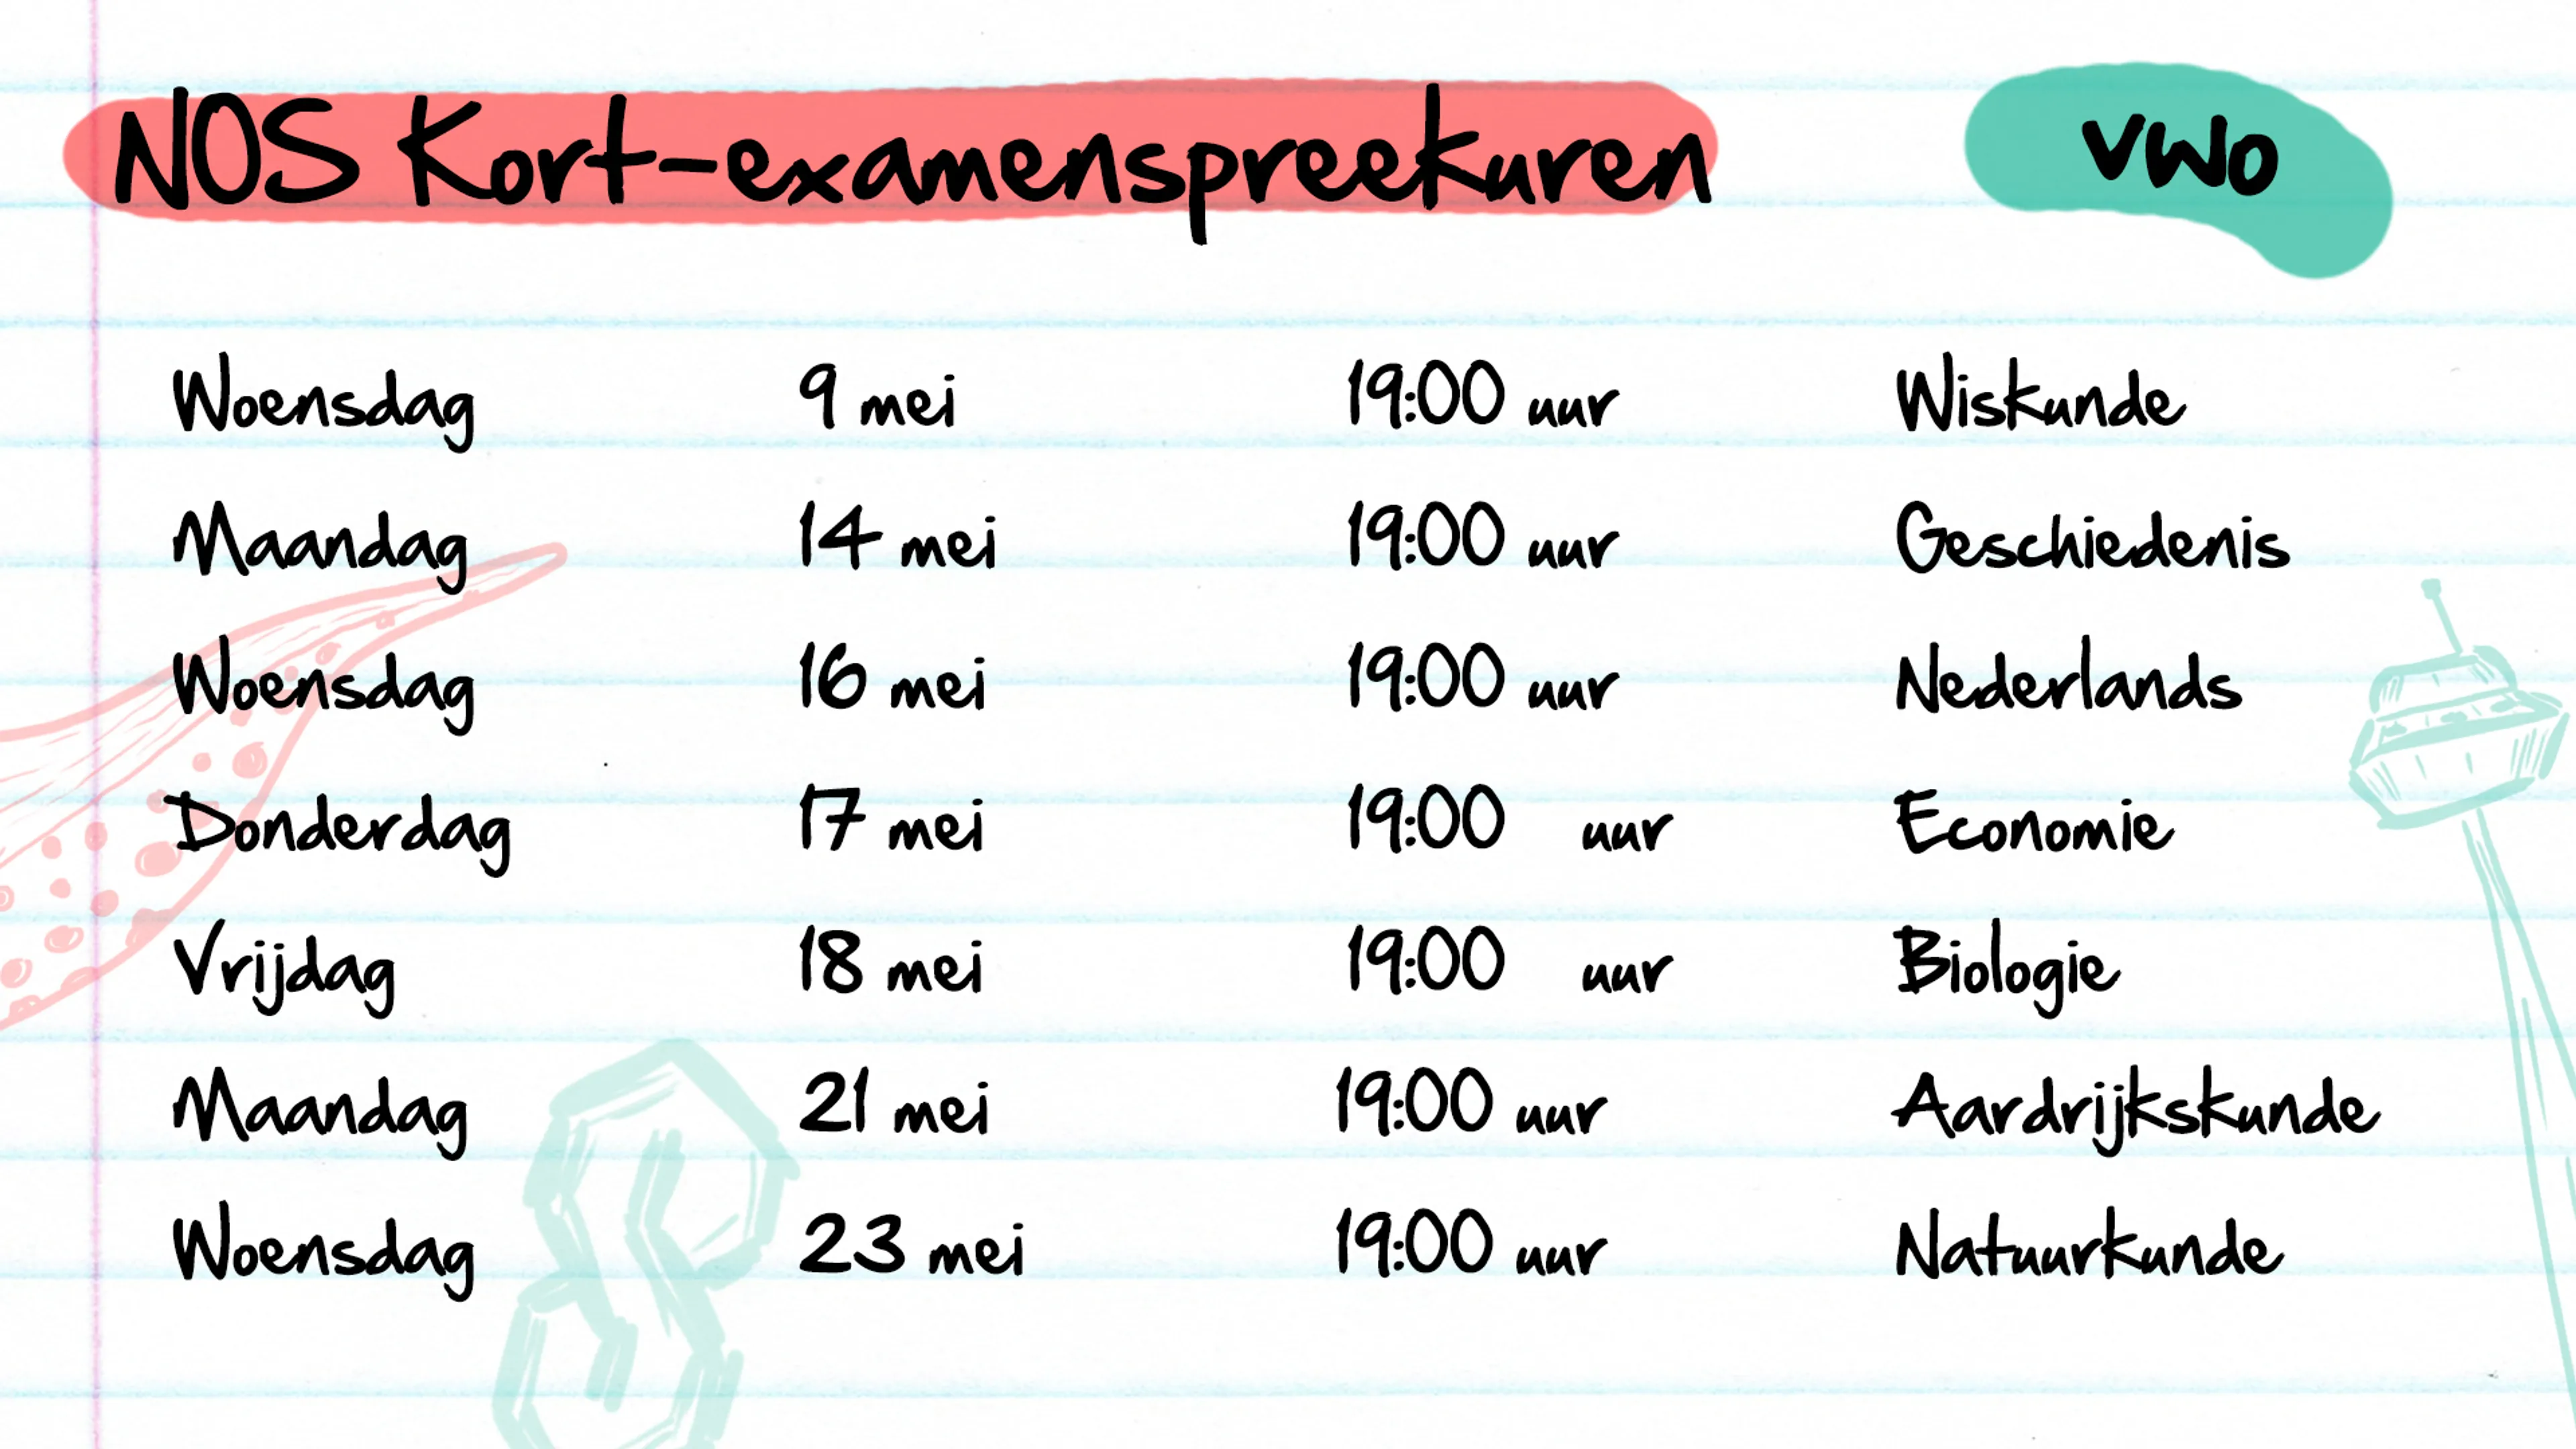 NOS Kort-examenspreekuren vwo
Woensdag 9 mei 19:00 uur Wiskunde
Maandag 14 mei 19:00 uur Geschiedenis
Woensdag 16 mei 19:00 uur Nederlands
Donderdag 17 mei 19:00 uur Economie
Vrijdag 18 mei 19:00 uur Biologie
Maandag 21 mei 19:00 uur Aardrijkskunde
Woensdag 23 mei 19:00 uur Natuurkunde